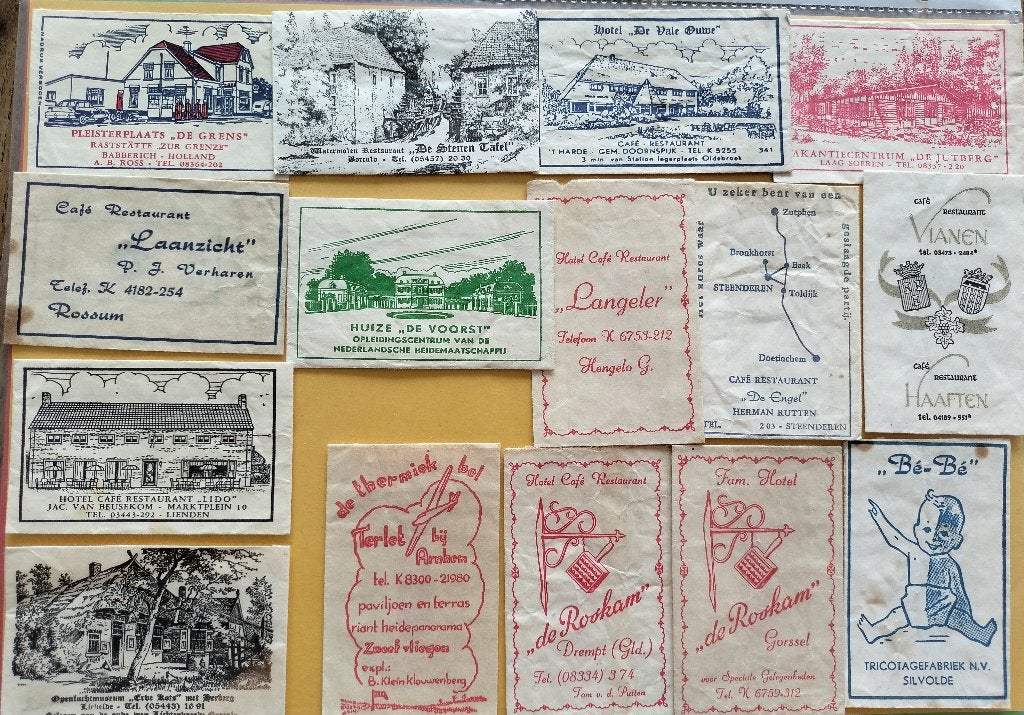 PLEISTERPLAATS „DE GRENS"
RASTSTÄTTE „ZUR GRENZE"
BABBERICH - HOLLAND
A. B. ROSS - TEL. 08364-202
Watermolen Restaurant „De Sterren Tafel"
Borculo - Tel. (05457) 20 30
Hotel „De Vale Ouwe"
CAFÉ - RESTAURANT
'T HARDE - GEM. DOORNSPIJK - TEL K 5255
341
3 min. van Station legerplaats Oldebroek
AKANTIECENTRUM „DE JUTBERG"
LAAG SOEREN - TEL. 08357 - 2 20
Café Restaurant
„Laanzicht"
P. J. Verharen
Telef. K 4182-254
Rossum
HUIZE „DE VOORST"
OPLEIDINGSCENTRUM VAN DE
NEDERLANDSCHE HEIDEMAATSCHAPPIJ
Hotel Café Restaurant
„Langeler"
Telefoon K 6753-212
Hengelo G.
U zeker bent van een
geslaagde partij.
en 't adres waar
Zutphen
Bronkhorst
Baak
STEENDEREN
Toldijk
Doetinchem
CAFÉ RESTAURANT
„De Engel"
HERMAN RUTTEN
TEL. 203 - STEENDEREN
café
restaurant
VIANEN
tel. 03473 - 2484*
café
restaurant
HAAFTEN
tel. 04189 - 551*
HOTEL CAFÉ RESTAURANT „LIDO"
JAC. VAN BEUSEKOM - MARKTPLEIN 10
TEL. 03443-292 - LIENDEN
de thermiek bel
Terlet bij
Arnhem
tel. K 8300 - 21980
paviljoen en terras
riant heidepanorama
Zweefvliegen
expl.:
B. Klein Klouwenberg
Hotel Café Restaurant
„de Roskam"
Drempt (Gld.)
Tel. (08334) 3 74
Tom v. d. Putten
Fam. Hotel
„de Roskam"
Gorssel
voor Speciale Gelegenheden
Tel. K 6759-312
„Bé-Bé"
TRICOTAGEFABRIEK N.V.
SILVOLDE
Openluchtmuseum „Erve Kots" met Herberg
Lievelde - Tel. (05443) 16 91